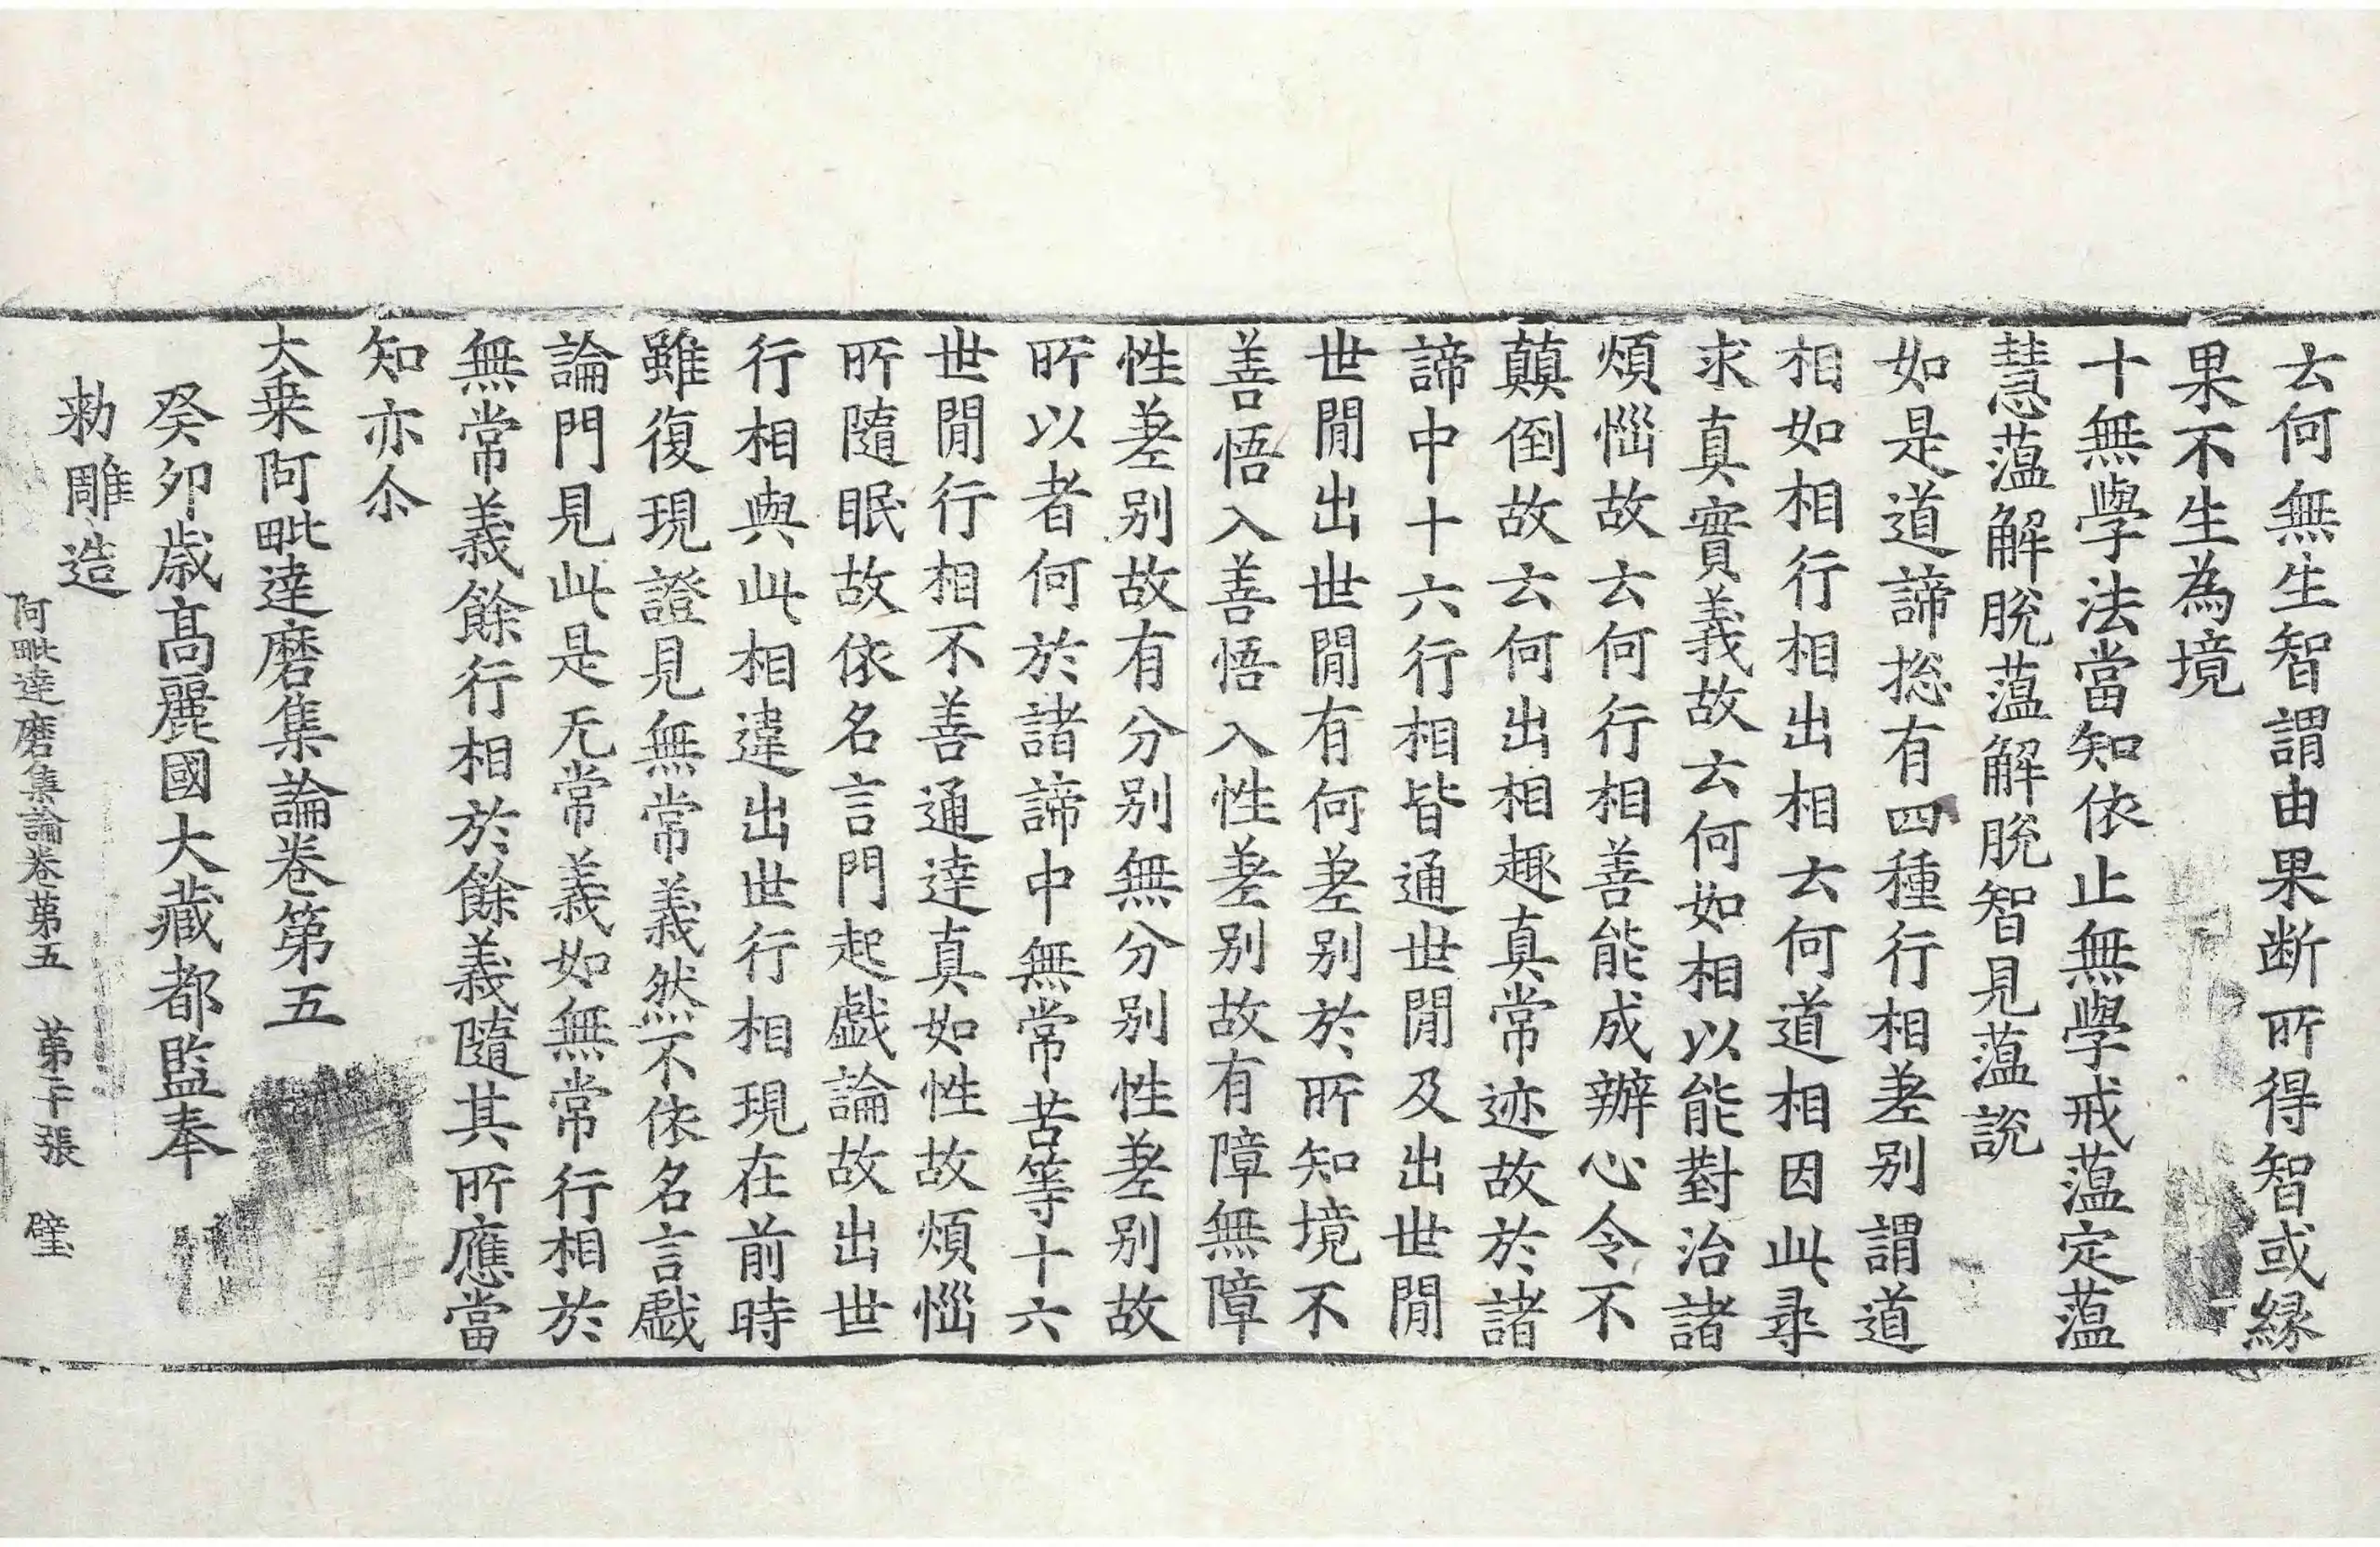 云何無生智謂由果断所得智或縁
果不生為境
十無學法當知依止無學戒薀定薀
慧薀解脫薀解脫智見薀說
如是道諦揔有四種行相差别謂道
相如相行相出相云何道相因此尋
求真實義故云何如相以能對治諸
煩惱故云何行相善能成辦心令不
顛倒故云何出相趣真常迹故於諸
諦中十六行相皆通世間及出世間
世間出世間有何差别於所知境不
善悟入善悟入性差别故有障無障
性差别故有分别無分别性差别故
所以者何於諸諦中無常苦等十六
世間行相不善通達真如性故煩惱
所隨眠故依名言門起戲論故出世
行相與此相違出世行相現在前時
雖復現證見無常義然不依名言戲
論門見此是无常義如無常行相於
無常義餘行相於餘義隨其所應當
知亦尒
大乗阿毗達磨集論卷第五
癸卯歳髙麗國大藏都監奉
勑雕造
阿毗達磨集論卷第五　第二十張　璧